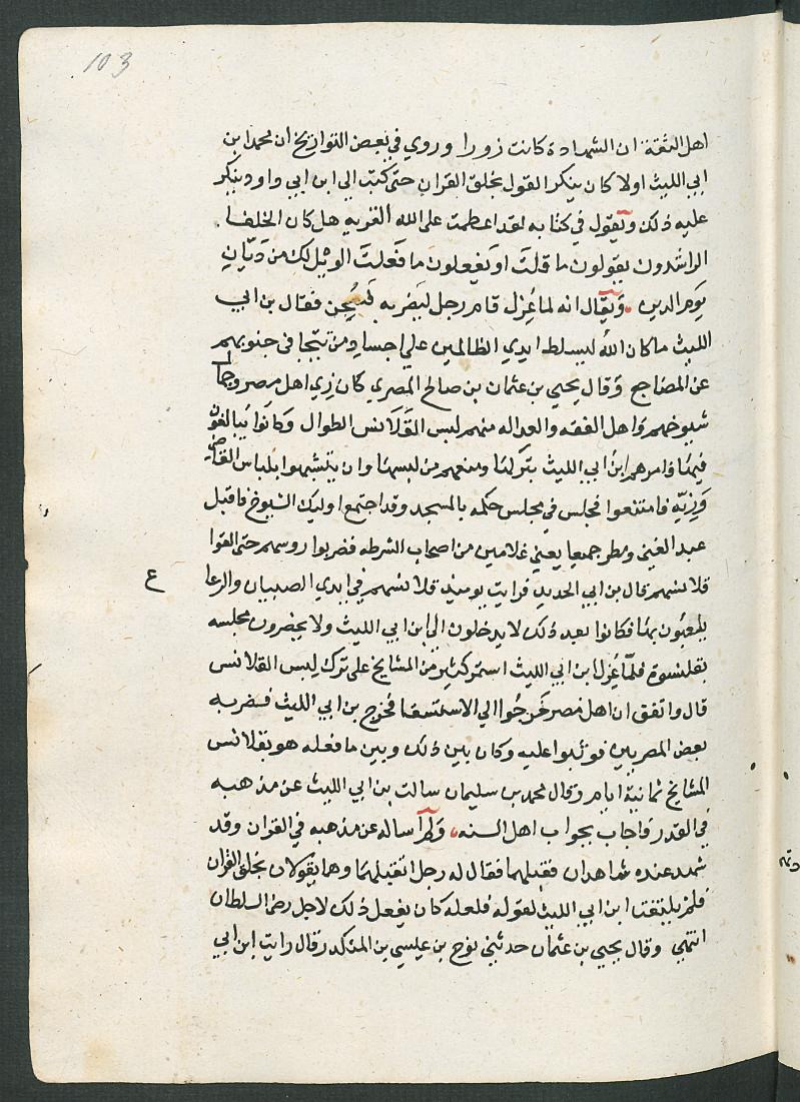 103
اهل الثقة ان الشهادة كانت زورا وروي في بعض التواريخ ان محمد ابن
ابي الليث اولا كان ينكر القول بخلق القران حتى كتب الي ابن ابي داود ينكر
عليه ذلك ويقول في كتابه لقد اعظمت على الله الفريه هل كان الخلفا
الراشدون يقولون ما قلت او يفعلون ما فعلت الويل لك من ديان
يوم الدين ويقال انه لما عزل قام رجل ليضربه فسجن فقال بن ابي
الليث ما كان الله ليسلط ايدي الظالمين علي اجساد من تتجافى جنوبهم
عن المضاجع وقال يحيي بن عثمان بن صالح المصري كان زي اهل مصر وجمال
شيوخهم واهل الفقه والعداله منهم لبس القلانس الطوال وكانوا يبالغون
فيها فامرهم ابن ابي الليث بتركها ومنعهم من لبسها وان يتشبهوا بلباس القاضي
وزيه فامتنعوا فجلس في مجلس حكمه بالمسجد وقد اجتمع اوليك الشيوخ فاقبل
عبد الغني ومطر جميعا يعني غلامين من اصحاب الشرطه فضربوا روسهم حتى القوا
قلانسهم قال بن ابي الحديد فرايت يوميذ قلانسهم في ايدي الصبيان والرعا
ع
يلعبون بها فكانوا بعد ذلك لا يدخلون الى ابن ابي الليث ولا يحضرون مجلسه
بقلنسوة فلما عزل ابن ابي الليث استمر كثير من المشايخ على ترك لبس القلانس
قال واتفق ان اهل مصر خرجوا الي الاستسقا فخرج بن ابي الليث فضربه
بعض المصريين فوثبوا عليه وكان بين ذلك وبين ما فعله هو بقلانس
المشايخ ثمانية ايام وقال محمد بن سليمان سالت بن ابي الليث عن مذهبه
في القدر فاجاب بجواب اهل السنه ولم اساله عن مذهبه في القران وقد
شهد عنده شاهدان فقبلهما فقال له رجل اتقبلهما وهما يقولان بخلق القران
فلم يلتفت ابن ابي الليث لقوله فلعله كان يفعل ذلك لاجل رضى السلطان
انتهي وقال يحيي بن عثمان حدثني نوح بن عيسي بن المنكدر قال رايت ابن ابي